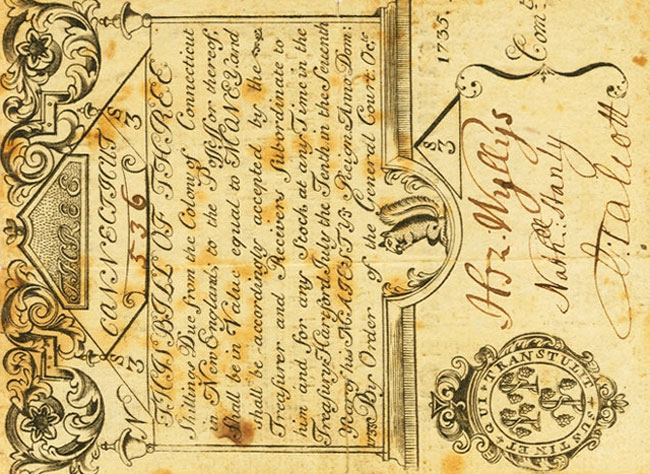 THREE
CONNECTICUT
No 536
S 3
S 3
THIS BILL OF THREE
Shillines Due from the Colony of Connecticut
in New England, to the Poſſeſſor thereof,
Shall be in Value equal to MONEY and
shall be accordingly accepted by the
Treaſurer and Receivers Subordinate to
him and for any Stock at any Time in the
Treaſury Hartford July the Tenth in the Seventh
Year of his MAJESTYs Reign Anno Dom:
1733 Per Order of the General Court. Octr 1735.
S 3
Hez. Wyllys
Nathll: Stanly
J. Talcott
QUI TRANSTULIT SUSTINET